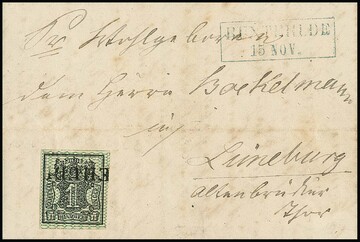 BUXTEHUDE
15 NOV.
Sr Wohlgeboren
dem Herrn Boekelmann
in
Lüneburg
Altenbrücker
Thor
1